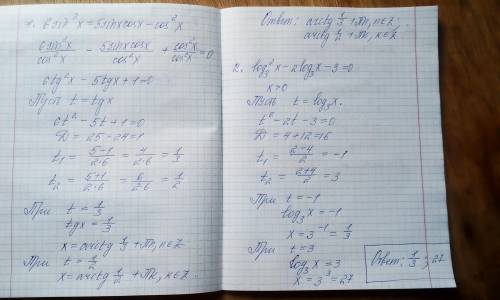 1. 6sin²x = 5sinxcosx - cos²x
6sin²x/cos²x - 5sinxcosx/cos²x + cos²x/cos²x = 0
6tg²x - 5tgx + 1 = 0
Пусть t = tgx
6t² - 5t + 1 = 0
D = 25 - 24 = 1
t₁ = (5-1)/(2·6) = 4/(2·6) = 1/3
t₂ = (5+1)/(2·6) = 6/(2·6) = 1/2
При t = 1/3
tgx = 1/3
x = arctg 1/3 + πn, n∈Z
При t = 1/2
x = arctg 1/2 + πk, k∈Z.
Ответ: arctg 1/3 + πn, n∈Z;
arctg 1/2 + πk, k∈Z
2. log₃²x - 2log₃x - 3 = 0
x > 0
Пусть t = log₃x.
t² - 2t - 3 = 0
D = 4 + 12 = 16
t₁ = (2-4)/2 = -1
t₂ = (2+4)/2 = 3
При t = -1
log₃x = -1
x = 3⁻¹ = 1/3
При t = 3
log₃x = 3
x = 3³ = 27
Ответ: 1/3; 27